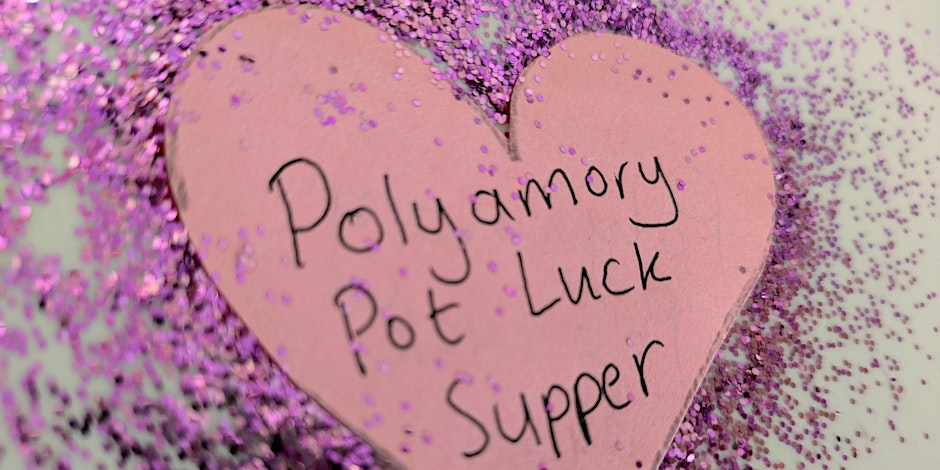 Polyamory
Pot Luck
Supper